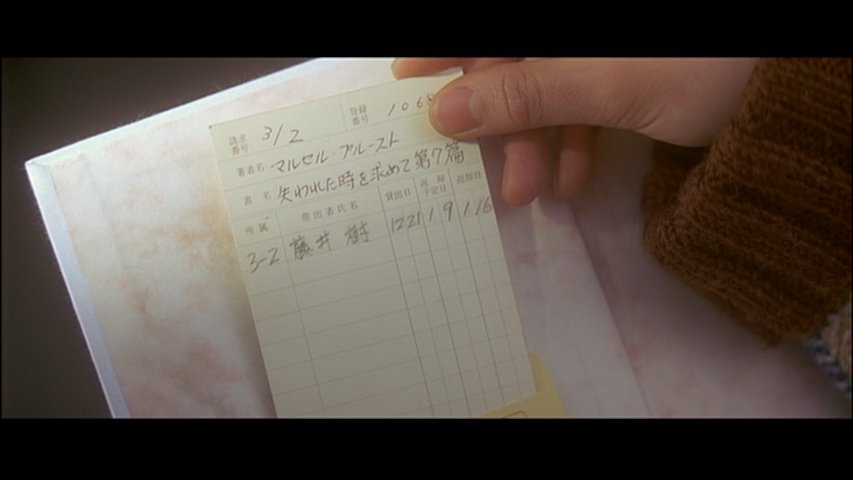 請求番号 3/2 登録番号 106
著者名 マルセル・プルースト
書名 失われた時を求めて 第7篇
所属 帯出者氏名 貸出日 返却予定日 返却日
3-2 藤井 樹 1221 1 9 1 16